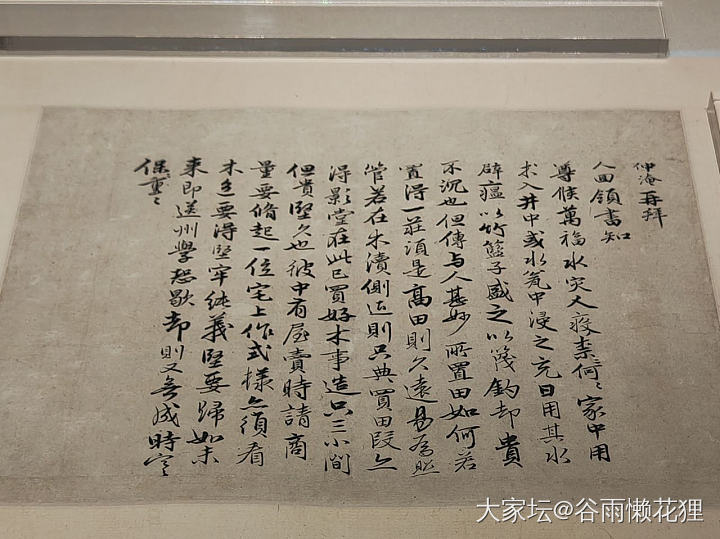 仲淹再拜
人回領書知
尊候萬福水灾大疫柰何〻家中用
朮入井中或水瓮中浸之充日用其水
辟瘟以竹籃子盛之以篾釣却貴
不沉也但傳与人甚妙所置田如何若
置得一莊須是高田則久遠易為照
管若在朱瀆側近則只典買田段亦
得影堂在此已買好木事造只三小間
但貴堅久也彼中有屋賣時請商
量要脩起一位宅上作式樣亦須看
木色要得堅牢純義堅要歸如未
来即送州學恐歇却則又無成時寒
保重〻
大家坛@谷雨懒花狸